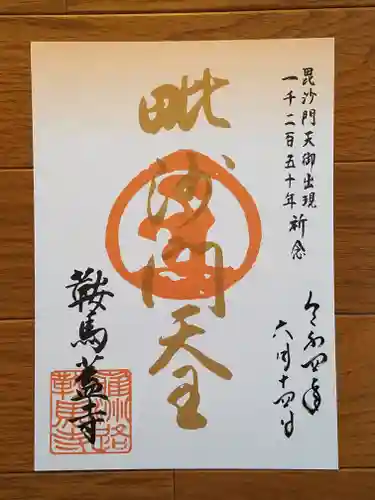 毘沙門天御出現
一千二百五十年 祈念
令和四年
六月十四日
毗沙門天王
鞍馬蓋寺